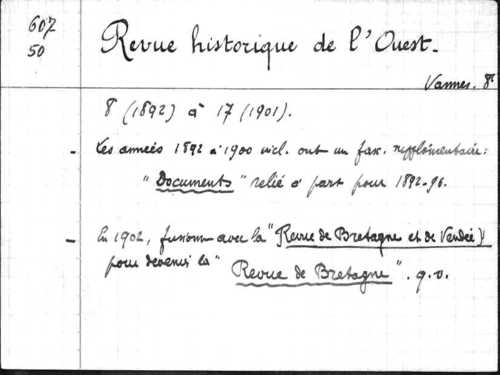 607
50
Revue historique de l'Ouest.
Vannes. 8°
8 (1892) à 17 (1901).
- Les années 1892 à 1900 incl. ont un fasc. supplémentaire:
"Documents" relié à part pour 1892-96.
- En 1902, fusionne avec la "Revue de Bretagne et de Vendée"
pour devenir la "Revue de Bretagne". q.v.